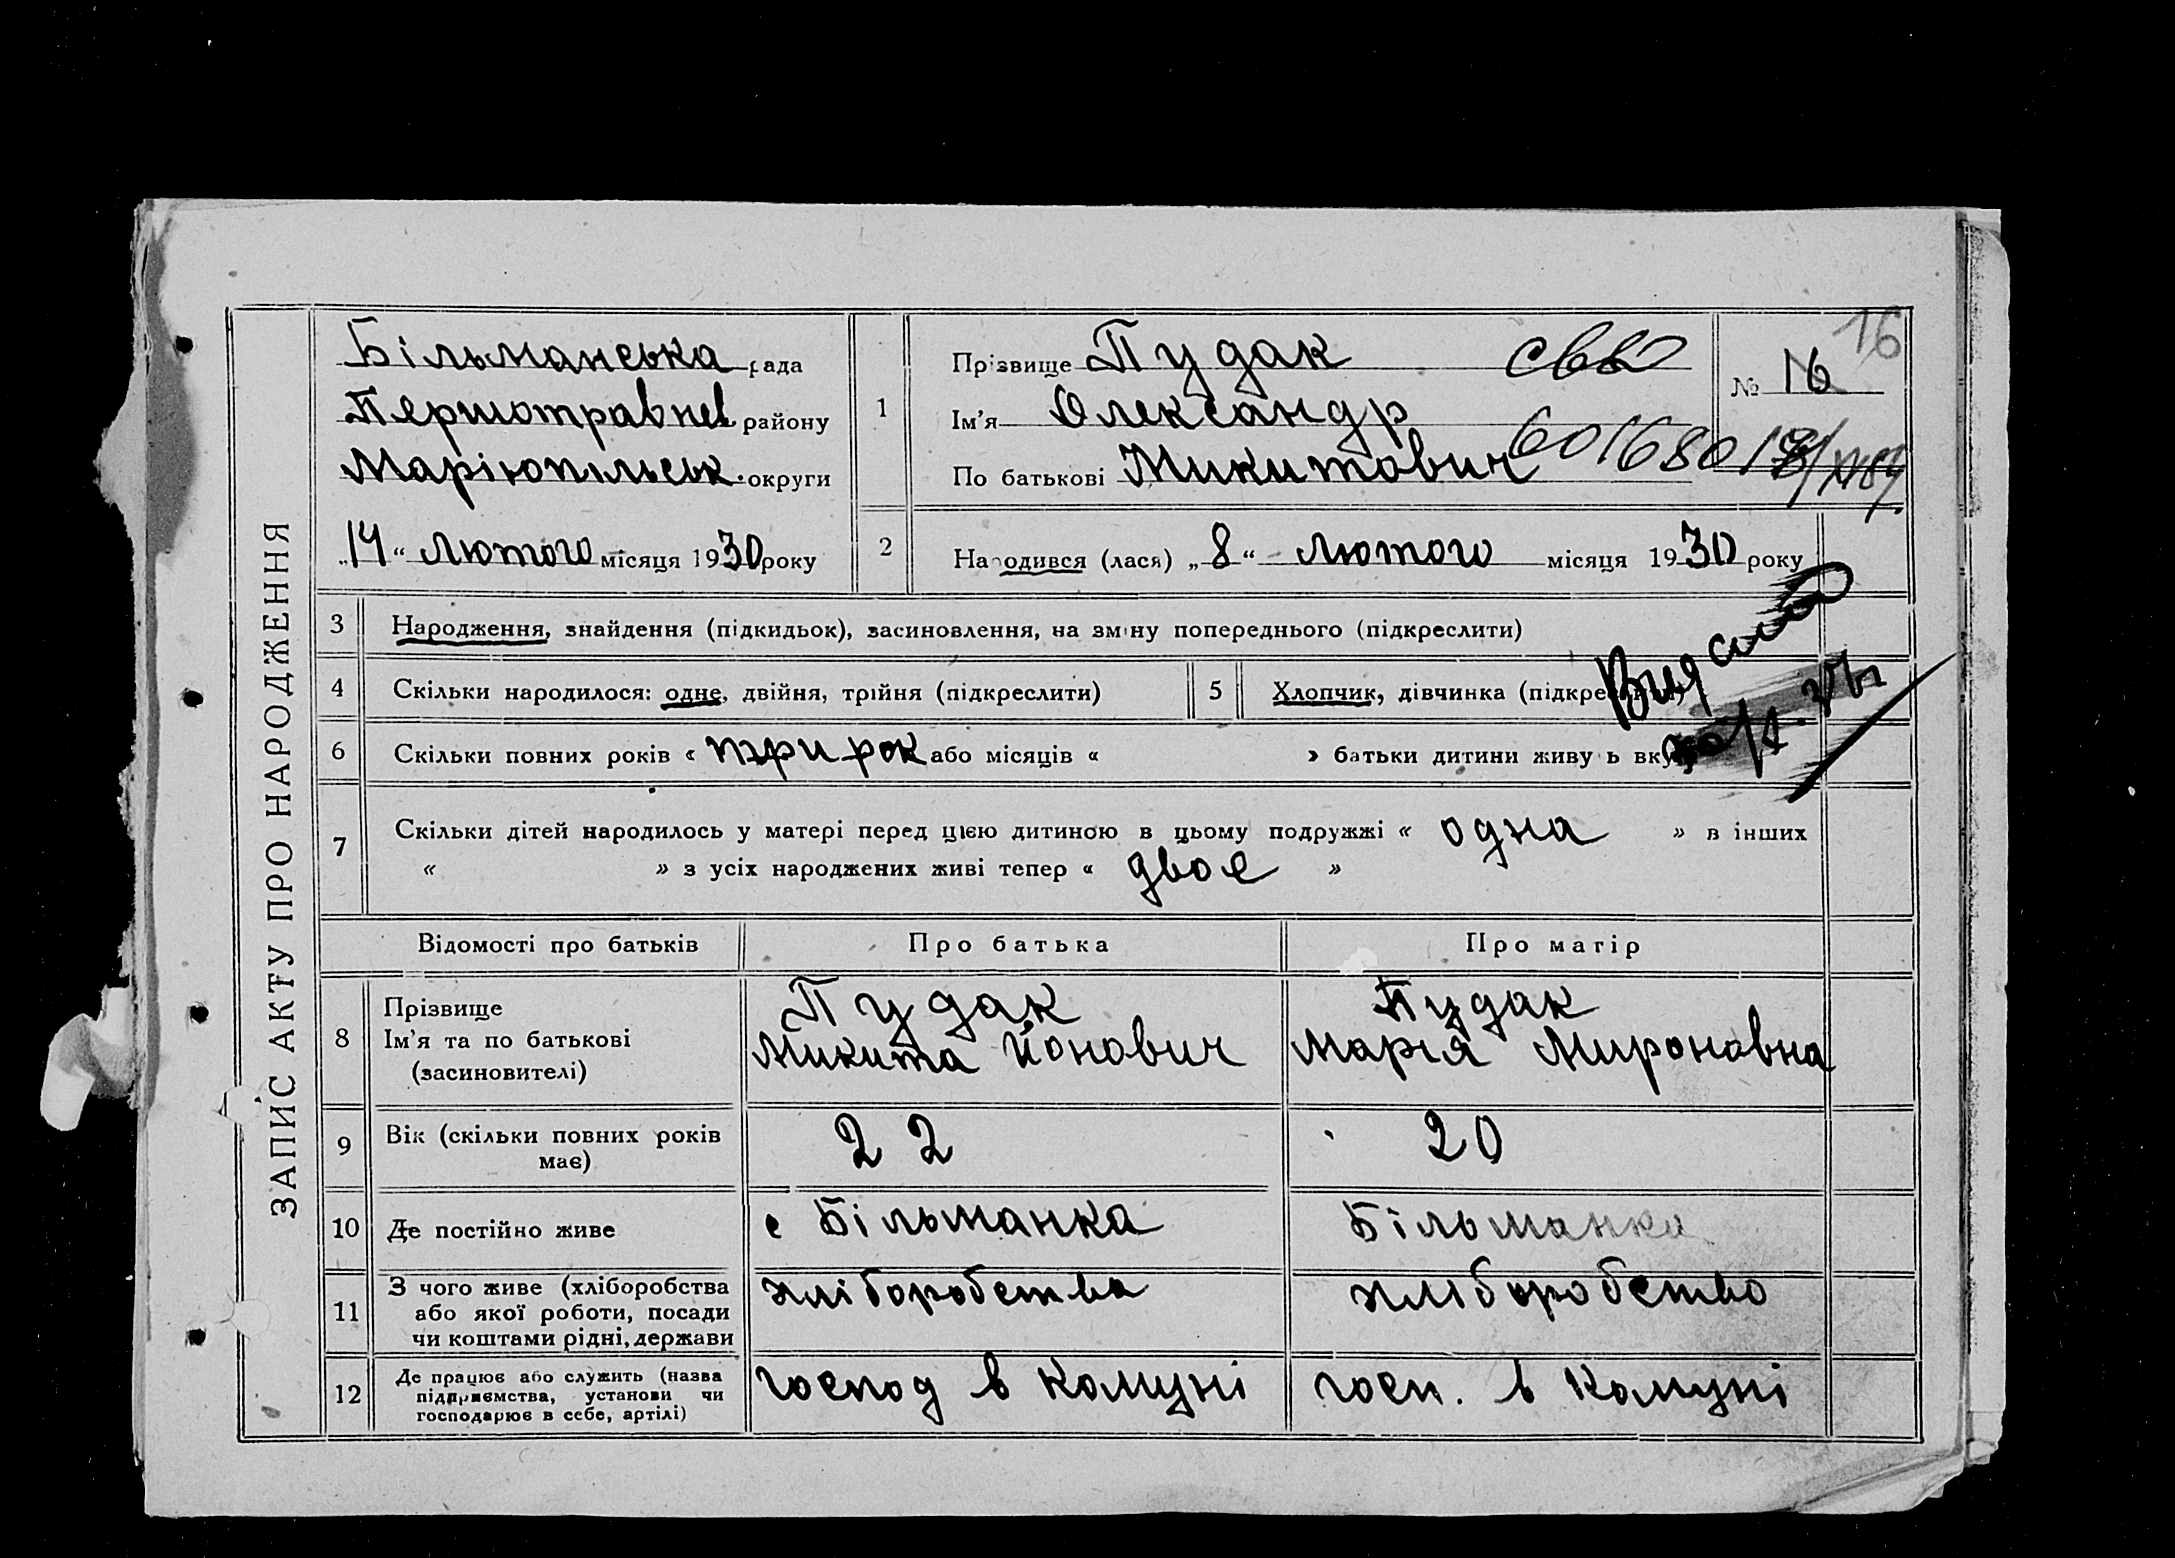 ЗАПИС АКТУ ПРО НАРОДЖЕННЯ
Більманська рада
Першотравнев району
Маріюпільськ. округи
„14“ лютого місяця 1930 року
1
Прізвище Пудак
Ім'я Олександр
По батькові Микитович
№ 16
16
601680
2
Народився (лася) „8“ лютого місяця 1930 року
3 Народження, знайдення (підкидьок), засиновлення, на зміну попереднього (підкреслити)
4 Скільки народилося: одне, двійня, трійня (підкреслити)
5 Хлопчик, дівчинка (підкреслити)
6 Скільки повних років « три рок або місяців « » батьки дитини живу ь вку
7 Скільки дітей народилось у матері перед цією дитиною в цьому подружжі « одна » в інших
« » з усіх народжених живі тепер « двоє »
Відомості про батьків Про батька Про матір
8 Прізвище
Ім'я та по батькові
(засиновителі)
Пудак
Микита Йонович
Пудак
Марія Мироновна
9 Вік (скільки повних років
має)
22
20
10 Де постійно живе
с Більманка
Більманка
11 З чого живе (хліборобства
або якої роботи, посади
чи коштами рідні, держави
хліборобства
хліборобство
12 Де працює або служить (назва
підприємства, установи чи
господарює в себе, артілі)
господ в комуні
госп. в комуні